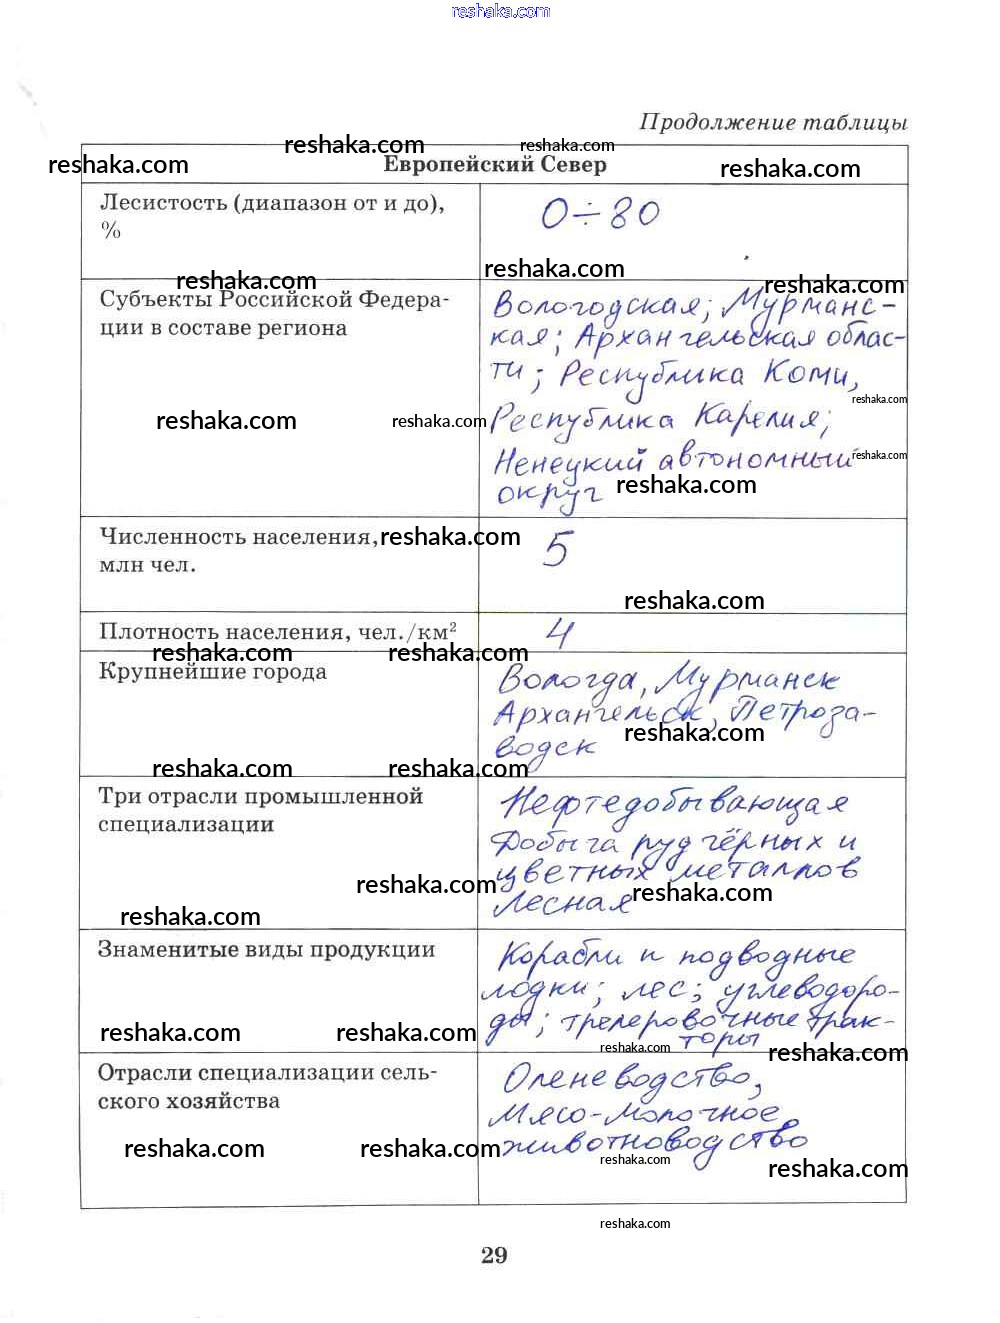 reshaka.com
Продолжение таблицы
reshaka.com reshaka.com
reshaka.com Европейский Север reshaka.com
Лесистость (диапазон от и до), 0÷80
%
reshaka.com reshaka.com reshaka.com
Субъекты Российской Федера- Вологодская; Мурманс-
ции в составе региона кая; Архангельская облас-
ти; Республика Коми,
reshaka.com
reshaka.com reshaka.com Республика Карелия;
Ненецкий автономный reshaka.com
округ reshaka.com
Численность населения, reshaka.com 5
млн чел.
reshaka.com
Плотность населения, чел./км² 4
reshaka.com reshaka.com
Крупнейшие города Вологда, Мурманск
Архангельск, Петроза-
reshaka.com
водск
reshaka.com reshaka.com
Три отрасли промышленной Нефтедобывающая
специализации Добыча руд чёрных и
цветных металлов
reshaka.com reshaka.com
Лесная
reshaka.com
Знаменитые виды продукции Корабли и подводные
лодки; лес; углеводоро-
ды; трелеровочные трак-
reshaka.com reshaka.com торы
reshaka.com reshaka.com
Отрасли специализации сель- Оленеводство,
ского хозяйства Мясо-молочное
животноводство
reshaka.com reshaka.com reshaka.com reshaka.com
reshaka.com
29